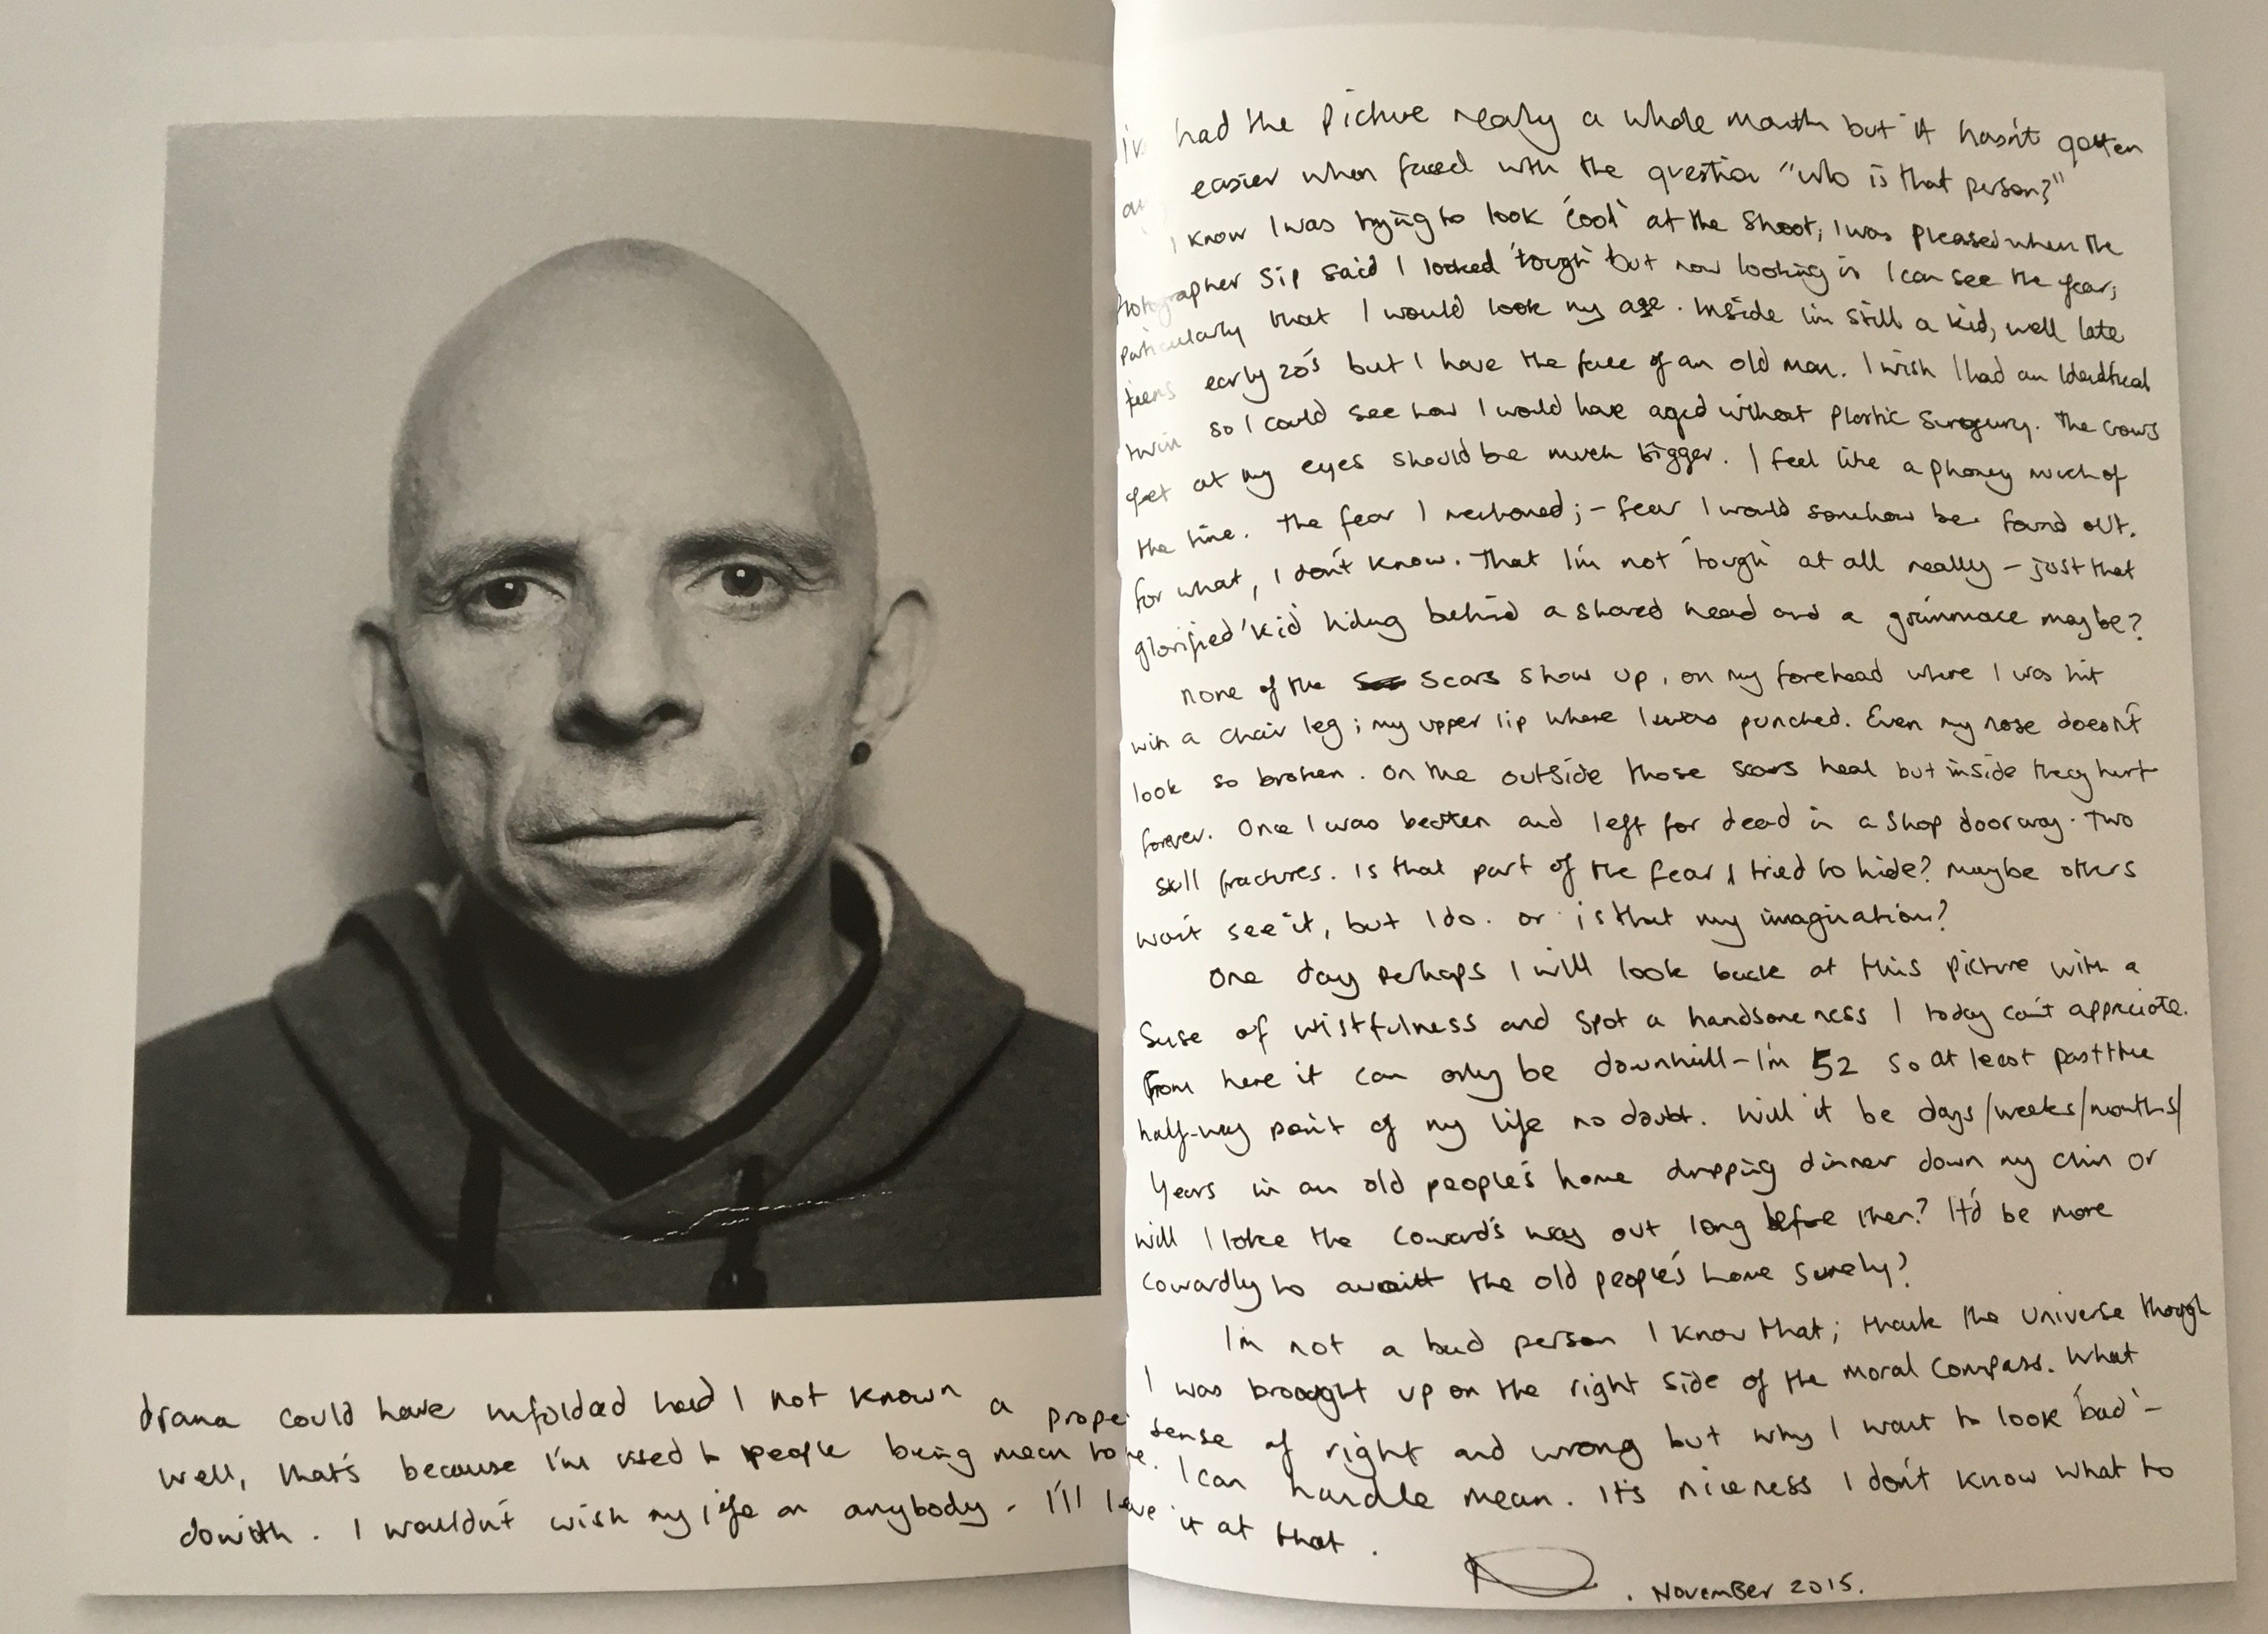 I've had the picture nearly a whole month but it hasn't gotten
any easier when faced with the question "who is that person?"
I know I was trying to look 'cool' at the shoot; I was pleased when the
photographer Sip said I looked 'tough' but now looking in I can see the fear;
particularly that I would look my age. Inside I'm still a kid, well late
teens early 20's but I have the face of an old man. I wish I had an identical
twin so I could see how I would have aged without plastic surgury. The crows
feet at my eyes should be much bigger. I feel like a phoney much of
the time. The fear I mentioned; - fear I would somehow be found out.
for what, I don't know. That I'm not 'tough' at all really - just that
glorified 'kid' hiding behind a shaved head and a grimmace maybe?
None of the scars show up, on my forehead where I was hit
with a chair leg; my upper lip where I was punched. Even my nose doesn't
look so broken. On the outside those scars heal but inside they hurt
forever. Once I was beaten and left for dead in a shop doorway. Two
skull fractures. Is that part of the fear I tried to hide? Maybe others
won't see it, but I do. or is that my imagination?
One day perhaps I will look back at this picture with a
sense of wistfulness and spot a handsomeness I today can't appreciate.
From here it can only be downhill - I'm 52 so at least past the
half-way point of my life no doubt. Will it be days/weeks/months/
years in an old people's home dripping dinner down my chin or
will I take the coward's way out long before then? It'd be more
cowardly to await the old people's home surely?
I'm not a bad person I know that; thank the universe though
I was brought up on the right side of the moral compass. What
drama could have unfolded had I not known a proper sense of right and wrong but why I want to look 'bad' -
well, that's because I'm used to people being mean to me. I can handle mean. It's niceness I don't know what to
do with. I wouldn't wish my life on anybody - I'll leave it at that.
. November 2015.